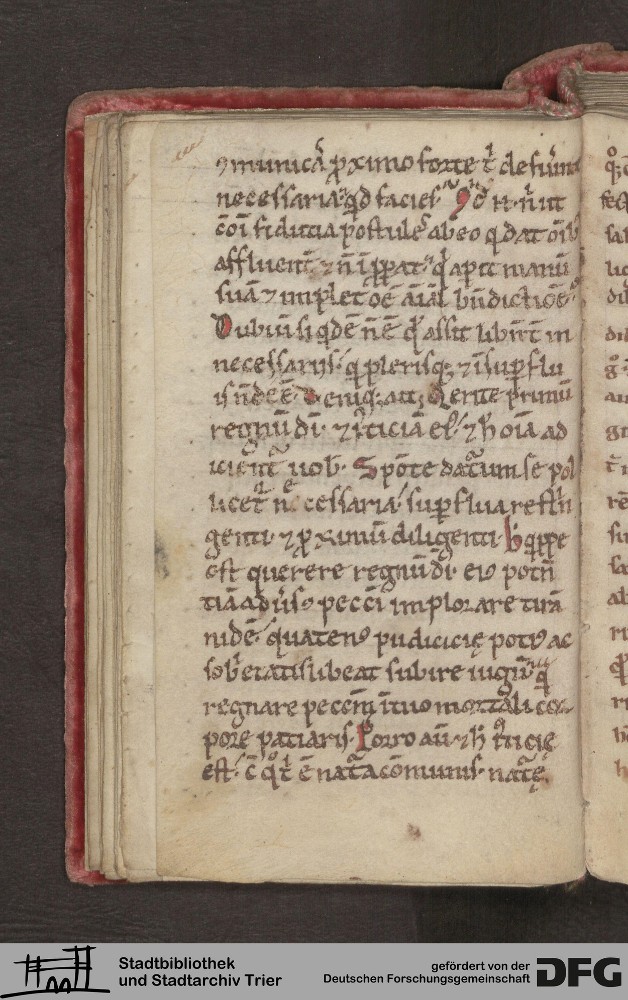 ꝯmunicā ꝓximo forte t̄ defuīnt
necessaria· qd facies· Qd n̄· n̄ ut
cōi fiducia postules ab eo q dat oīb
affluent̄· ⁊ n̄ īpꝑat· q apit manū
suā ⁊ implet oē aīal bn̄dictiōe·
Dubiū siqdē n̄ ē qd assit libn̄t in
necessariis· q plerisqꝫ ⁊ ī suꝑflu
is n̄ deē· Deniqꝫ ait; Qerite primū
regnū dī· ⁊ iusticiā eī· ⁊ h̄ oīa ad
icient̄ uob· Spōte daturum se pol
licet necessaria· suꝑflua restn
genti· ⁊ ꝓximū diligenti· h qippe
est querere regnū dī· eiꝰ potn̄
tiā aduersꝰ pecci implorare tirā
nidē· quatenꝰ pudicicię potiꝰ ac
sobrietati subeat subire iugū· qm
regnare peccm ī tuo mortali cor
pore patiaris· Porro aū· ⁊ h iusticię
est· c̄ qo t̄ ē nat̃a cōmunis· nat̃ę
Stadtbibliothek
und Stadtarchiv Trier
gefördert von der
Deutschen Forschungsgemeinschaft
DFG